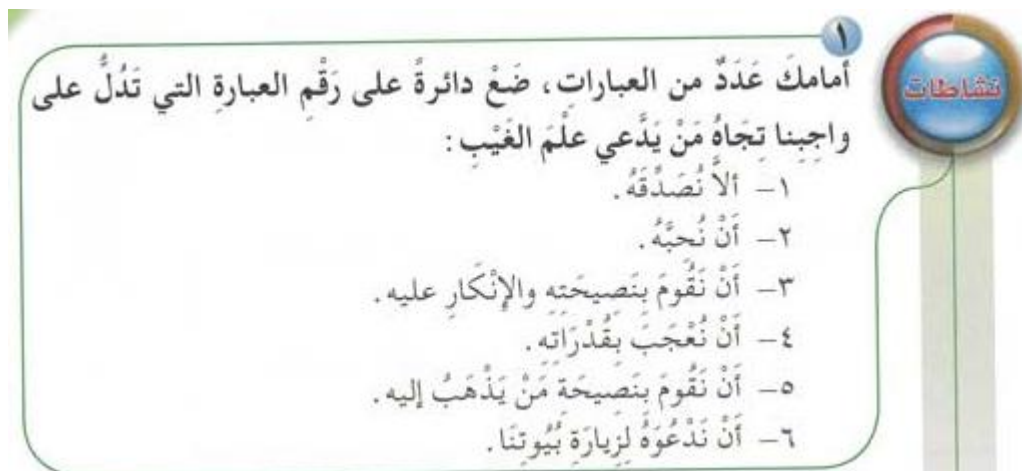 نشاطات
١
أمامكَ عَدَدٌ من العباراتِ، ضَعْ دائرةً على رَقْمِ العبارةِ التي تَدُلُّ على
واجِبِنا تِجَاهُ مَنْ يَدَّعي عِلْمَ الغَيْبِ:
١- ألاَّ نُصَدِّقَهُ.
٢- أَنْ نُحِبَّهُ.
٣- أَنْ نَقُومَ بِنَصِيحَتِهِ والإِنْكَارِ عليه.
٤- أَنْ نُعْجَبَ بِقُدْرَاتِهِ.
٥- أَنْ نَقُومَ بِنَصِيحَةِ مَنْ يَذْهَبُ إليه.
٦- أَنْ نَدْعُوَهُ لِزِيارَةِ بُيُوتِنَا.